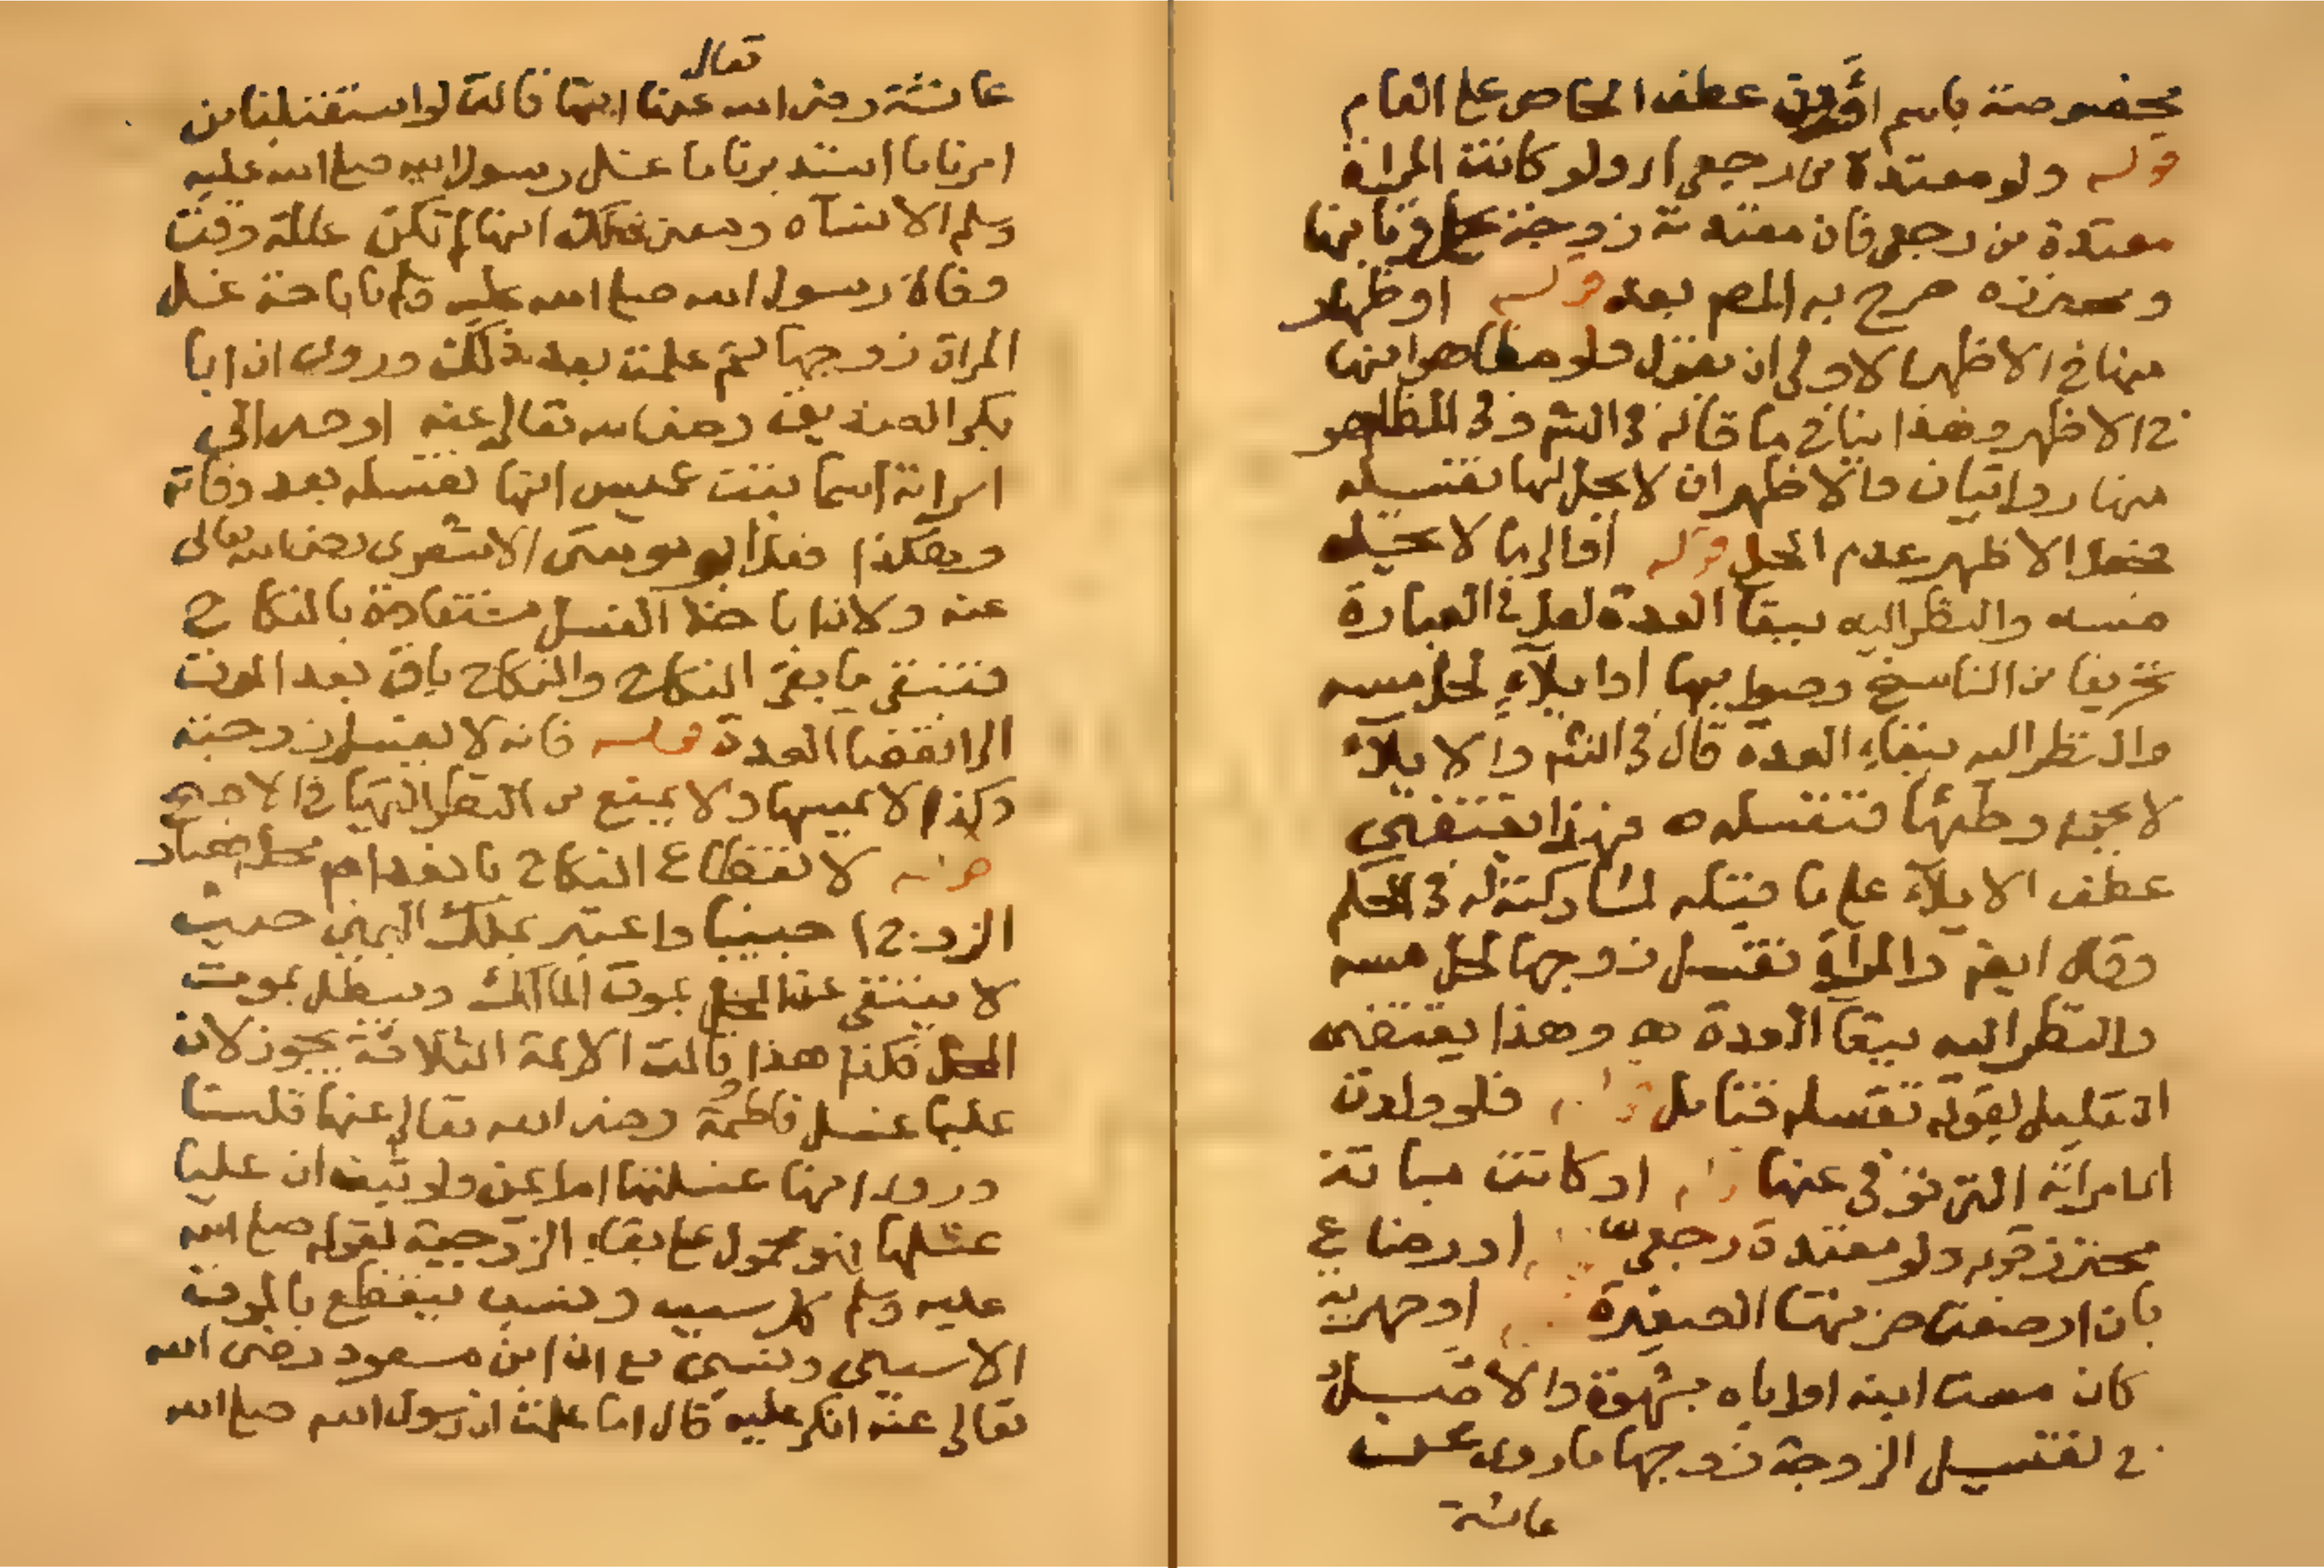 مخصوصة باسم أو من عطف الخاص على العام
قوله ولو معتدة من رجعي أي ولو كانت المرأة
معتدة من رجعي فان معتدته زوجة
ومحترزه صرح به المص بعد قوله او ظاهر
منها في الاظهر الاولى ان يقول ولو مظاهرا منها
في الاظهر وهذا ينافي ما قاله في الشرح وفي المظاهر
منها روايتان والاظهر ان لا يحل لها تغسيله
فجعل الاظهر عدم الحل قوله
مسه والنظر اليه ببقا العدة لعل في العبارة
تحريفا من الناسخ وصوابها او ايلاء لحل مسه
والنظر اليه ببقاء العدة قال في الشرح والايلاء
لا يحرم وطئها فتغسله ه فهذا يقتضي
عطف الايلاء على ما قبله لمشاركته له في الحكم
وقال ايضا والمرأة تغسل زوجها لحل مسه
والنظر اليه ببقا العدة ه وهذا يقتضي
التعليل لقوله تغسله فتامل قوله فلو ولدت
اي امراته التي توفي عنها قوله او كانت مبانة
محترز قوله ولو معتدة رجعي قوله او رضاع
بان ارضعت ضرتها الصغيرة قوله او صهرية
كان مست ابنه او اباه بشهوة والاصل
في تغسيل الزوجة زوجها ما روى عن
عائشة
تعالى
عائشة رضى الله عنها انها قالت لو استقبلنا من
امرنا ما استدبرنا ما غسل رسول الله صلى الله عليه
وسلم الا نساه ومعنى ذلك انها لم تكن عالمة وقت
وفاة رسول الله صلى الله عليه وسلم باباحة غسل
المراة زوجها ثم علمت بعد ذلك وروى ان ابا
بكر الصديق رضى الله تعالى عنه اوصى الى
امراته اسما بنت عميس انها تغسله بعد وفاته
وهكذا فعل ابو موسى الاشعرى رضى الله تعالى
عنه ولان اباحة الغسل مستفادة بالنكاح
فتبقى ما بقى النكاح والنكاح باق بعد الموت
الى انقضا العدة قوله فانه لا يغسل زوجته
وكذا لا يمسها ولا يمنع من النظر اليها في الاصح
قوله لانقطاع النكاح بانعدام محله فصار
الزوج اجنبيا واعتبر بملك اليمين حيث
لا ينتفى عن المحل بموت المالك ويبطل بموت
المحل فكذا هذا قالت الائمة الثلاثة يجوز لان
عليا غسل فاطمة رضى الله تعالى عنها قلنا
ورود انها غسلتها ام ايمن ولو ثبت ان عليا
غسلها فهو محمول على بقاء الزوجية لقوله صلى الله
عليه وسلم كل سبب ونسب ينقطع بالموت
الا سببي ونسبي مع ان ابن مسعود رضى الله
تعالى عنه انكر عليه قال اما علمت ان رسول الله صلى الله